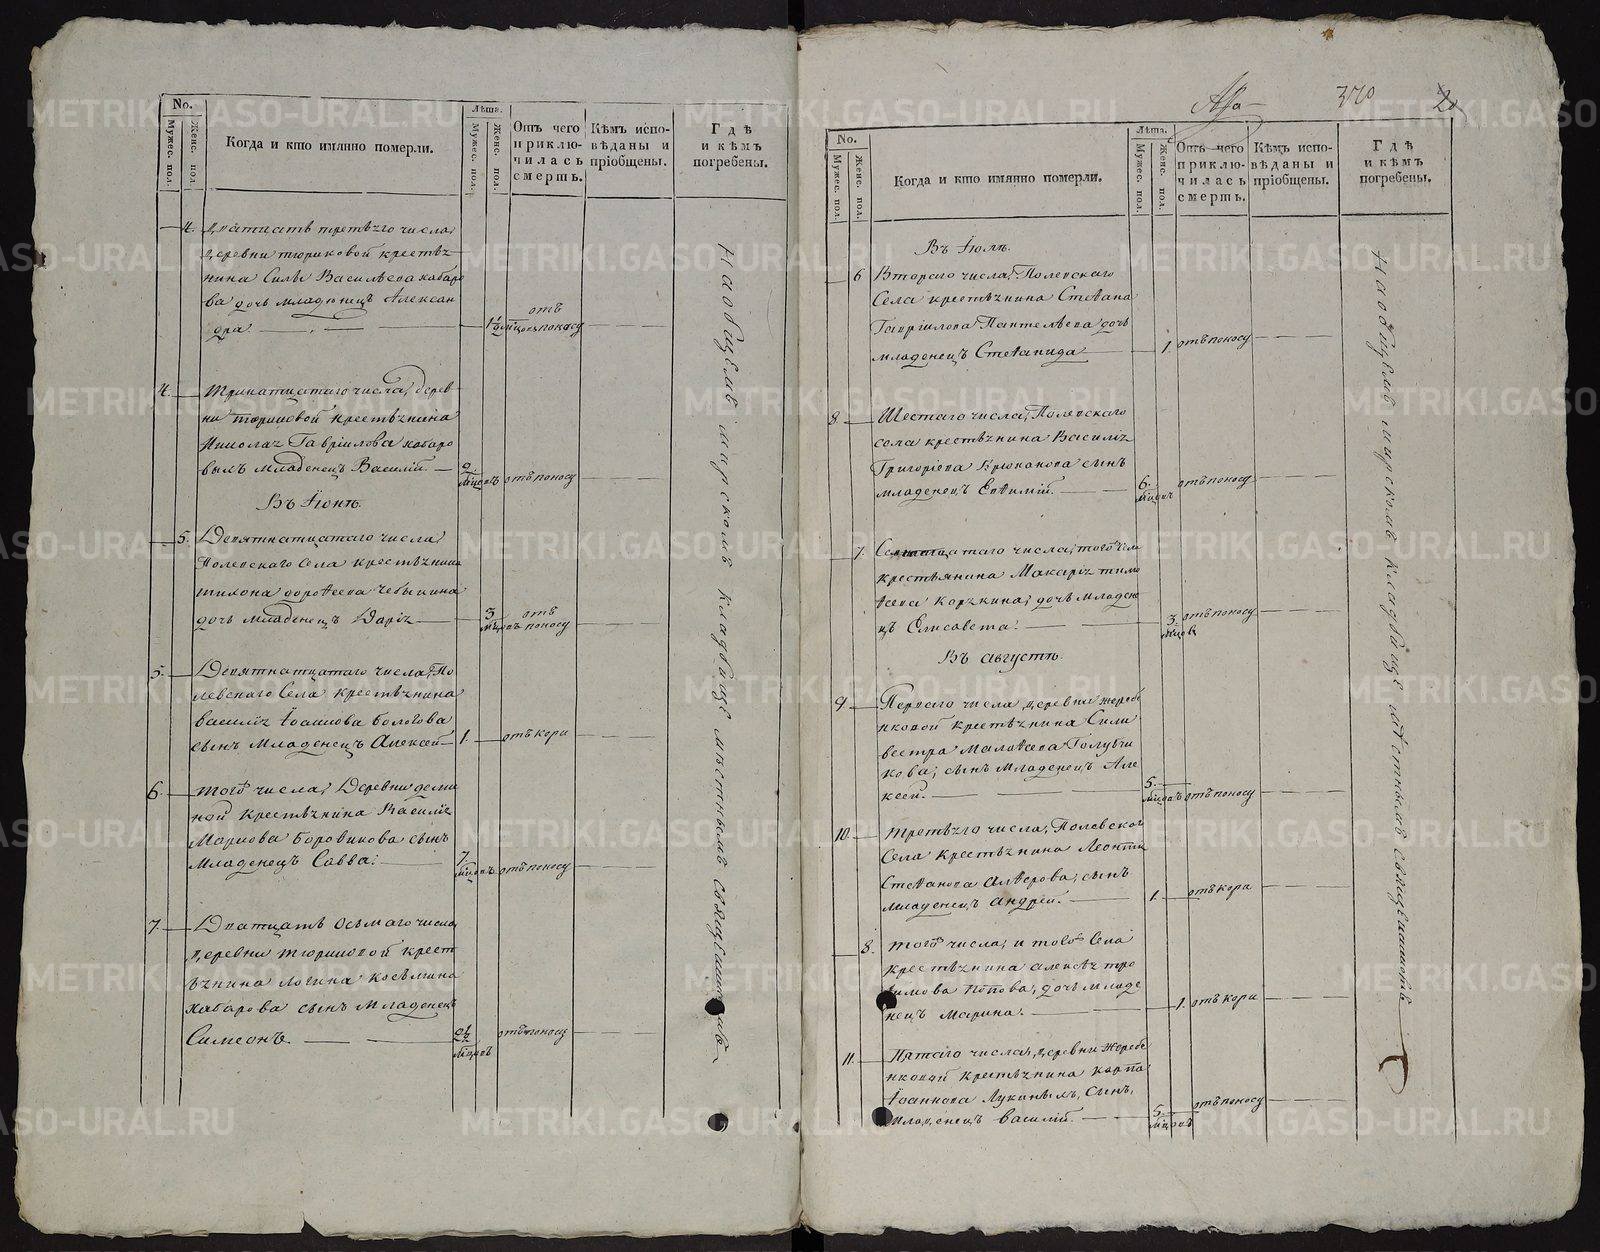 No.
Мужес. пол.
Женс. пол.
Когда и кто имянно померли.
Лѣта.
Мужес. пол.
Женс. пол.
Отъ чего
приклю-
чилась
смерть.
Кѣмъ испо-
вѣданы и
пріобщены.
Гдѣ
и кѣмъ
погребены.
4.
Дватцать третьяго числа,
деревни тюриковой крестья
нина Силы Васильева хабаро
ва дочь младенецъ Алексан
дра
1½ мѣсяцъ
отъ
поносу
4.
Тринатцатаго числа, дерев
ни крестьянина
Николая Гавріилова хабаро
выхъ младенецъ Василій.
2.
мѣсяцъ
отъ поносу
Въ Іюнѣ.
5.
Девятнатцатаго числа,
Полевскаго Села крестьянина
дороѳеева
дочь младенецъ Дарія
3
отъ
поносу
5.
Девятнатцатаго числа, По
левскаго Села крестьянина
Василія Іоаннова Болотова
сынъ младенецъ Алексѣй
1.
отъ кори
6.
того числа, деревни деми
ной крестьянина Василія
Маркова Боровикова сынъ
младенецъ Савва.
7.
мѣсяцъ
отъ поносу
7.
Дватцать Осьмаго числа,
деревни крест
ьянина логина козьмина
хабарова сынъ младенецъ
Симеонъ.
2½
мѣсяцъ
отъ поносу
На общемъ мирскомъ кладбище мѣстнымъ священникомъ
370
No.
Мужес. пол.
Женс. пол.
Когда и кто имянно померли.
Лѣта.
Мужес. пол.
Женс. пол.
Отъ чего
приклю-
чилась
смерть.
Кѣмъ испо-
вѣданы и
пріобщены.
Гдѣ
и кѣмъ
погребены.
Въ Іюлѣ.
6
Втораго числа, Полевскаго
Села крестьянина Стефана
Гавріилова Пантелѣева дочь
младенецъ Стефанида
1.
отъ поносу
8.
Шестаго числа, Полевскаго
села крестьянина Василія
Григоріева Крюканова сынъ
младенецъ Евѳимій.
6.
мѣсяцъ
отъ поносу
7.
числа, того Села
крестьянина Макарія тимо
ѳеева Корякина, дочь младене
цъ Елисавета.
3.
мѣсяцъ
отъ поносу
Въ августѣ.
9.
Перваго числа, деревни жереб
нковой крестьянина Сили
вестра Матѳеева Голубчи
кова, сынъ младенецъ Але
ксѣй.
5.
мѣсяцъ
отъ поносу
10.
третьяго числа, Полевскаго
Села крестьянина Леонтія
Стефанова Алферова, сынъ
младенецъ андрей.
1.
отъ кори
8.
того числа, и того Села
крестьянина алексѣя тро
фимова Попова, дочь младе
нецъ Марина.
1.
отъ кори
11.
Пятаго числа, деревни жеребе
нковой крестьянина карпа
Іоаннова Луканиныхъ, сынъ,
младенецъ василій.
5.
мѣсяцъ
отъ поносу
На общемъ мирскомъ кладбище мѣстнымъ священникомъ
METRIKI.GASO-URAL.RU